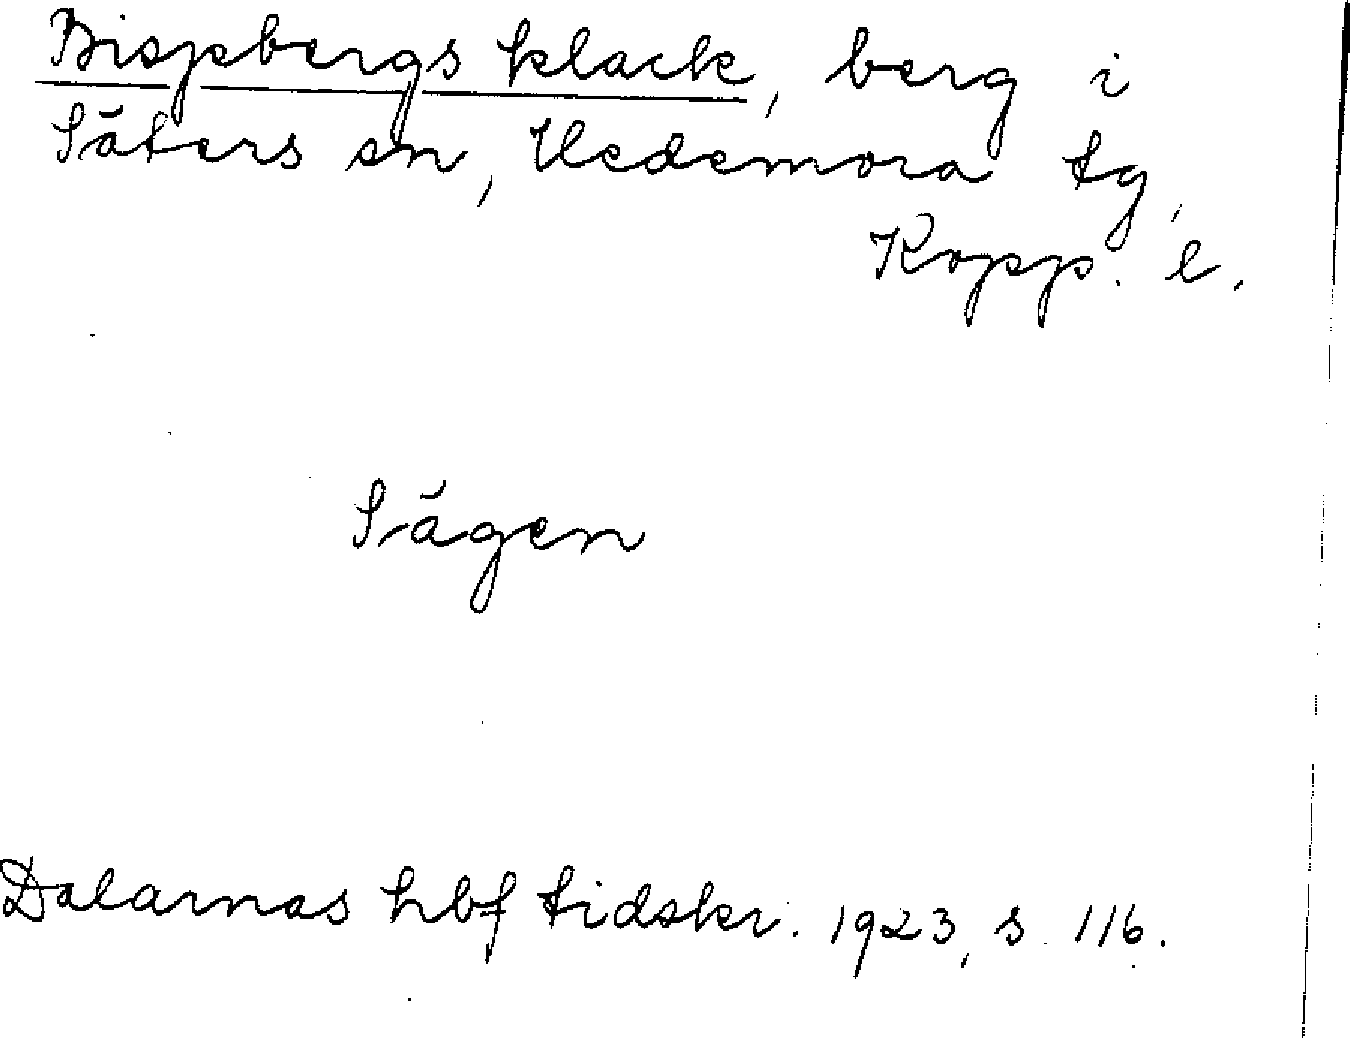 Bispbergs klack, berg i
Säters sn, Hedemora tg,
Kopp. l.
Sägen
Dalarnas hbf tidskr. 1923, s. 116.